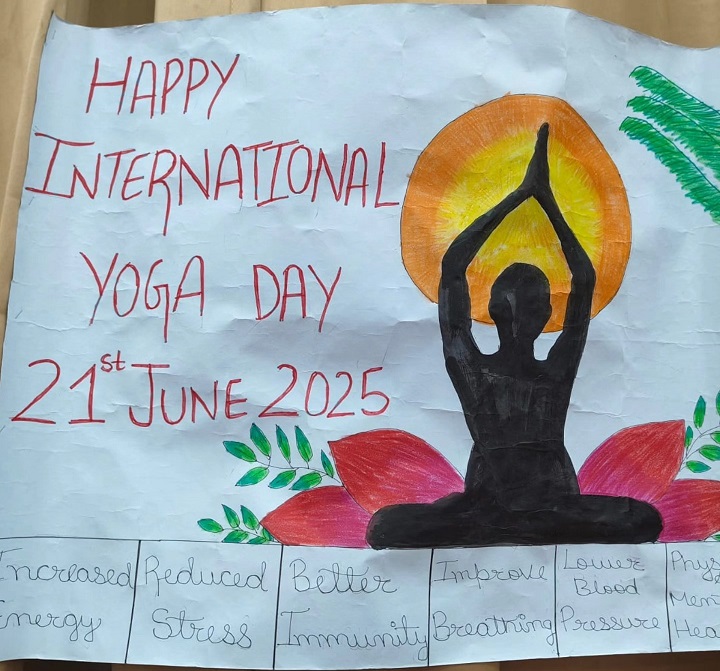 HAPPY
INTERNATIONAL
YOGA DAY
21st JUNE 2025
Increased
Energy
Reduced
Stress
Better
Immunity
Improve
Breathing
Lower
Blood
Pressure